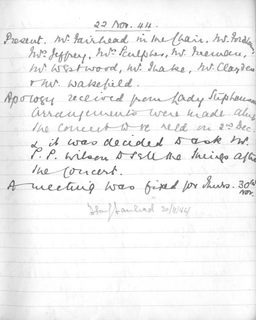 22 Nov. 44.
Present. Mr. Fairhead in the Chair. Mr.
Mrs Jeffrey, Mr. Sculpher, Mr.
Mr. Westwood, Mr. Mr. Clayden
& Mr. Wakefield.
Apology received from Lady Stephenson
Arrangements were made abt
the concert to be held on 2nd Dec.
& it was decided to ask Mr.
P.P. Wilson to sell the things after
the concert.
A meeting was fixed for Thurs. 30th
Nov.
Fairhead 30/11/44